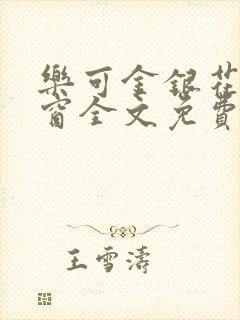 樂可金銀花
窗全文免費
王雪濤